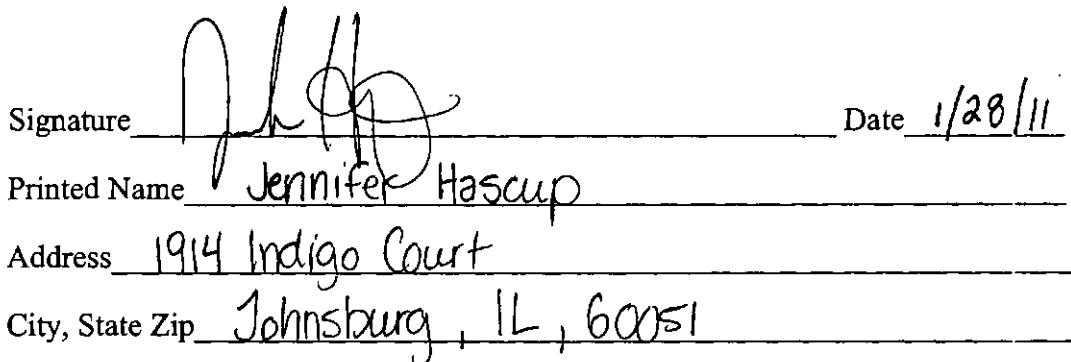 Signature Date 1/28/11
Printed Name Jennifer Hascup
Address 1914 Indigo Court
City, State Zip Johnsburg, IL, 60051